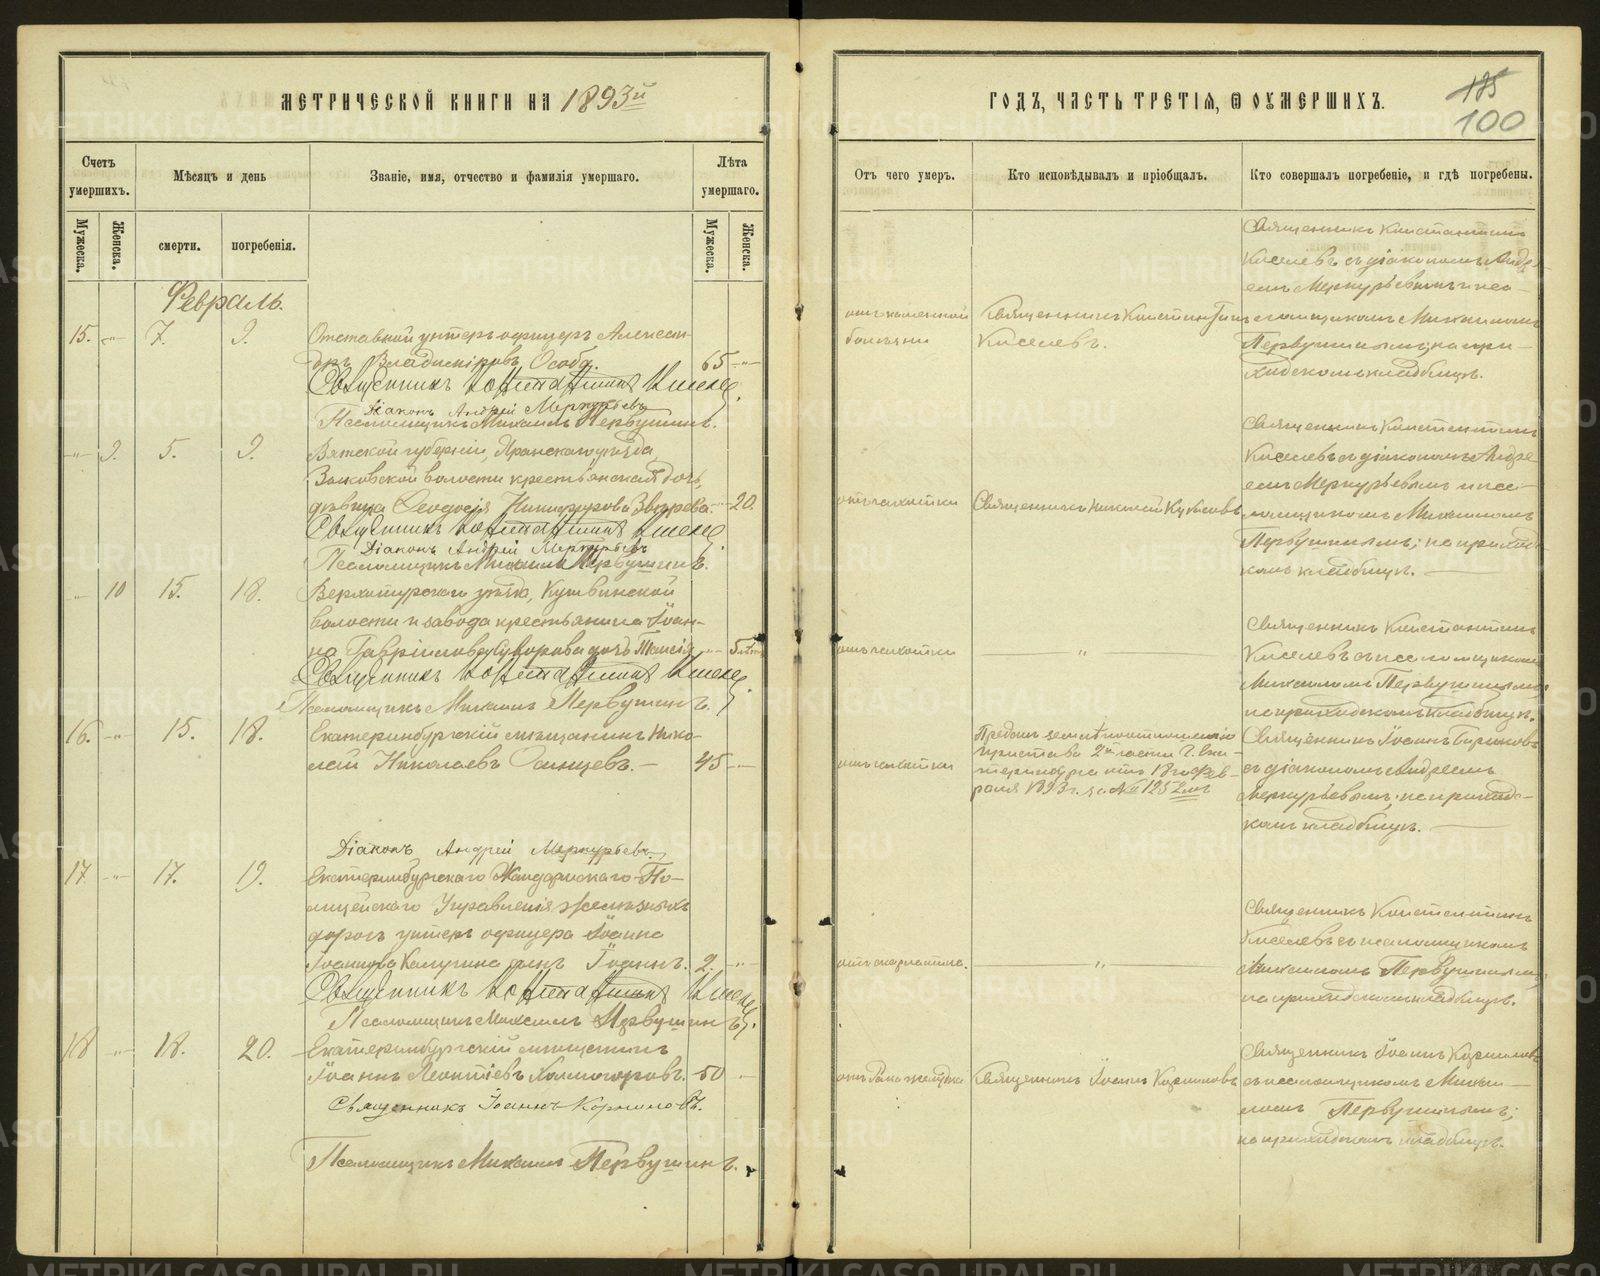 МЕТРИЧЕСКОЙ КНИГИ НА 1893й
Счетъ умершихъ.
Мѣсяцъ и день
Званіе, имя, отчество и фамилія умершаго.
Лѣта умершаго.
Мужеска.
Женска.
смерти.
погребенія.
Мужеска.
Женска.
Февраль.
15. -"- 7. 9. Отставной унтеръ офицеръ Алексан-
дръ Владиміровъ Особа. 65 -"-
Священникъ Константинъ Киселевъ
Діаконъ Андрей Меркурьевъ
Псаломщикъ Михаилъ Первушинъ.
-"- 9. 5. 9. Вятской губерніи, Яранскаго уѣзда,
волости крестьянская дочь,
дѣвица Ѳеодосія Никифорова 20.
Священникъ Константинъ Киселевъ
Діаконъ Андрей Меркурьевъ
Псаломщикъ Михаилъ Первушинъ.
-"- 10 15. 18. Верхотурскаго уѣзда, Кушвинской
волости и завода крестьянина Іоан-
на Гавріилова Суворова дочь Таисія -"- 5
Священникъ Константинъ Киселевъ
Псаломщикъ Михаилъ Первушинъ.
16. -"- 15. 18. Екатеринбургскій мѣщанинъ Нико-
лай Николаевъ 45 -"-
Діаконъ Андрей Меркурьевъ.
17 -"- 17. 19. Екатеринбургскаго Жандармскаго По-
лицейскаго Управленія желѣзныхъ
дорогъ унтеръ офицера Іоанна
Іоаннова Калугина сынъ Іоаннъ. 2. -"-
Священникъ Константинъ Киселевъ
Псаломщикъ Михаилъ Первушинъ.
18 -"- 18. 20. Екатеринбургскій мѣщанинъ
Іоаннъ Леонтіевъ Холмогоровъ. 50 -
Священникъ Іоаннъ Корниловъ.
Псаломщикъ Михаилъ Первушинъ.
ГОДЪ, ЧАСТЬ ТРЕТІЯ, Ѿ ОУМЕРШИХЪ.
185
100
Отъ чего умеръ.
Кто исповѣдывалъ и пріобщалъ.
Кто совершалъ погребеніе, и гдѣ погребены.
отъ каменной
болѣзни
Священникъ Константинъ
Киселевъ.
Священникъ Константинъ
Киселевъ съ діакономъ Андре-
емъ Меркурьевымъ и пса-
ломщикомъ Михаиломъ
Первушинымъ; на при-
ходскомъ кладбищѣ.
отъ чахотки
Священникъ Николай
Священникъ Константинъ
Киселевъ съ діакономъ Андре
емъ Меркурьевымъ и пса-
ломщикомъ Михаиломъ
Первушинымъ; на приход-
комъ кладбищѣ.
отъ чахотки
"
Священникъ Константинъ
Киселевъ съ псаломщикомъ
Михаиломъ Первушинымъ
на приходскомъ кладбищѣ.
отъ чахотки
Преданъ землѣ по отношенію
пристава 2й части г. Ека-
теринбурга отъ 18го Фев-
раля 1893 г. за №
Священникъ Іоаннъ Корниловъ
съ діакономъ Андреемъ
Меркурьевымъ; на приход-
комъ кладбищѣ.
отъ скарлатины.
"
Священникъ Константинъ
Киселевъ съ псаломщикомъ
Михаиломъ Первушинымъ
на приходскомъ кладбищѣ.
отъ рака желудка
Священникъ Іоаннъ Корниловъ
Священникъ Іоаннъ Корниловъ
съ псаломщикомъ Михаи-
ломъ Первушинымъ;
на приходскомъ кладбищѣ.
METRIKI.GASO-URAL.RU